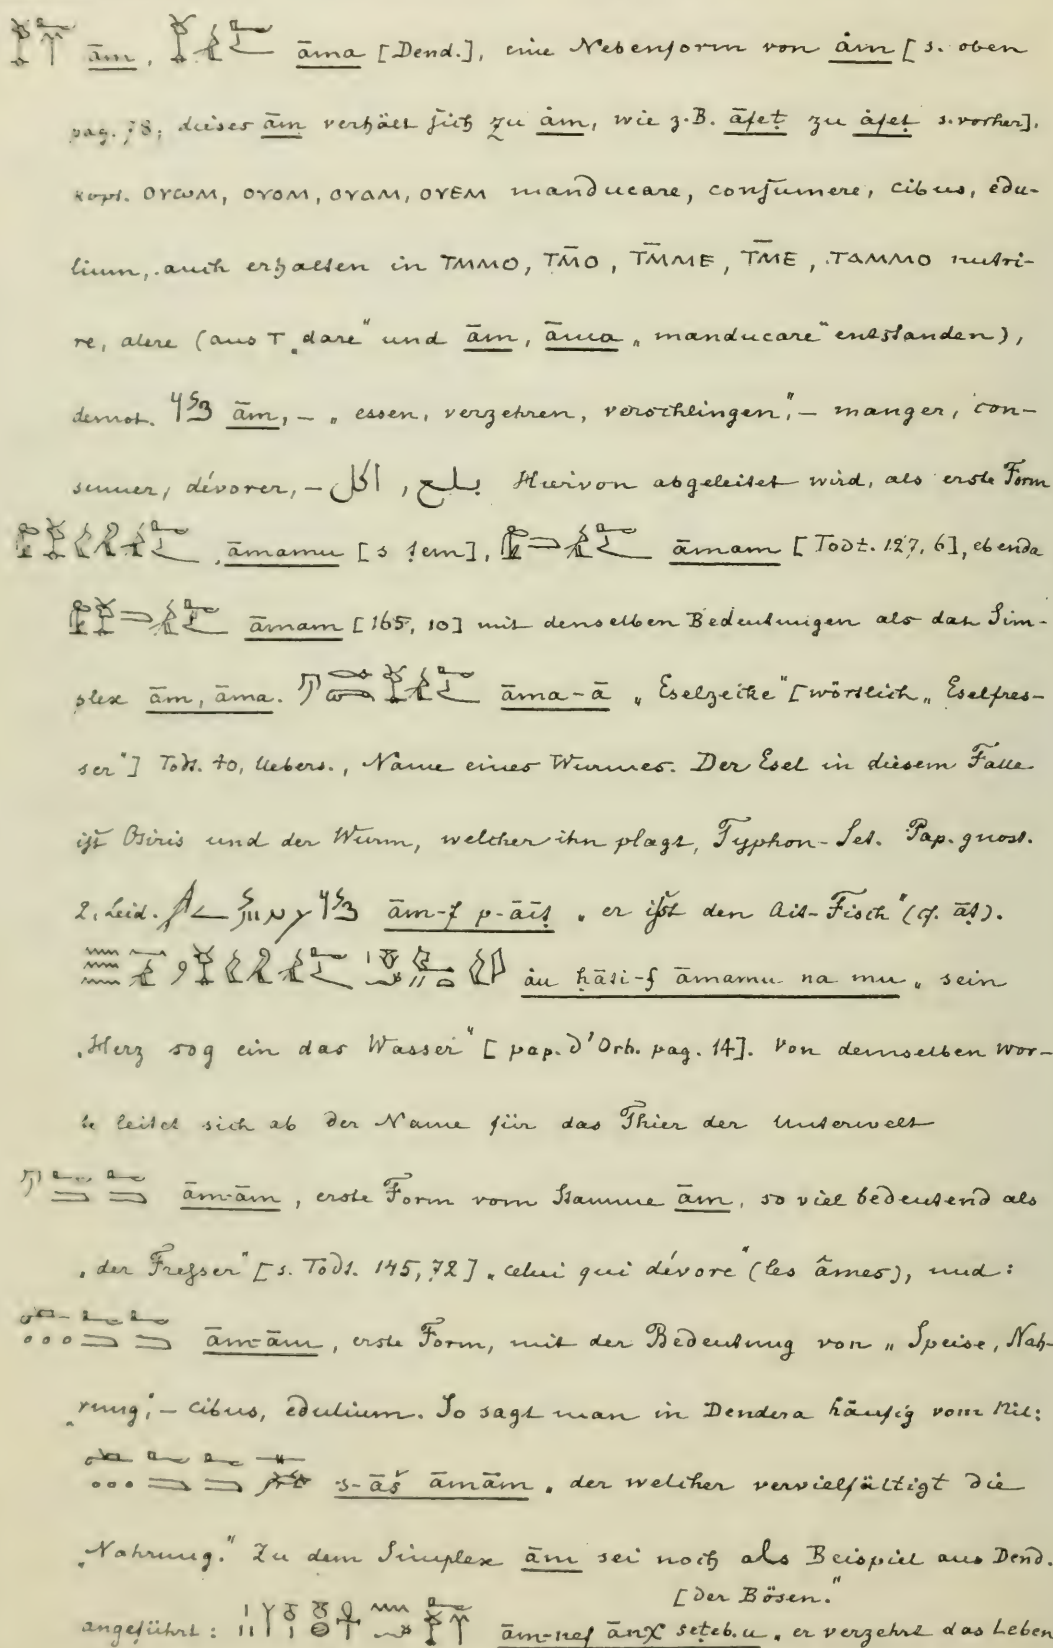 ām, āma [Dend.], eine Nebenform von ȧm [s. oben
pag. 78; dieses ām verhält sich zu ȧm, wie z.B. āfeṭ zu ȧfeṭ s. vorher].
kopt. ⲟⲩⲱⲙ, ⲟⲩⲟⲙ, ⲟⲩⲁⲙ, ⲟⲩⲉⲙ manducare, consumere, cibus, edu-
lium, auch erhalten in ⲧⲙⲙⲟ, ⲧⲙ̄ⲟ, ⲧⲙ̄ⲙⲉ, ⲧⲙ̄ⲉ, ⲧⲁⲙⲙⲟ nutri-
re, alere (aus ⲧ „dare" und ām, āma „manducare" entstanden),
demot. ām, – „essen, verzehren, verschlingen", – manger, con-
sumer, dévorer, – اكل, بلع Hiervon abgeleitet wird, als erste Form
āmamu [s fem], āmam [Todt. 127, 6], ebenda
āmam [165, 10] mit denselben Bedeutungen als das Sim-
plex ām, āma. āma-ā „Eselzecke" [wörtlich „Eselfres-
ser"] Todt. 40, Uebers., Name eines Wurmes. Der Esel in diesem Falle
ist Osiris und der Wurm, welcher ihn plagt, Typhon-Set. Pap. gnost.
2, Leid. ām-f p-āiṭ „er ißt den Ait-Fisch" (cf. āṭ).
ȧu ḥāti-f āmamu na mu „sein
„Herz sog ein das Wasser" [pap. d'Orb. pag. 14]. Von demselben Wor-
te leitet sich ab der Name für das Thier der Unterwelt
ām-ām, erste Form vom Stamme ām, so viel bedeutend als
„der Fresser" [s. Todt. 145, 72] „celui qui dévore" (les âmes), und:
ām-ām, erste Form, mit der Bedeutung von „Speise, Nah-
„rung", – cibus, edulium. So sagt man in Dendera häufig vom Nil:
s-āš āmām „der welcher vervielfältigt die
„Nahrung." Zu dem Simplex ām sei noch als Beispiel aus Dend.
[der Bösen."
angeführt: ām-nef ānχ seṭeb.u „er verzehrt das Leben